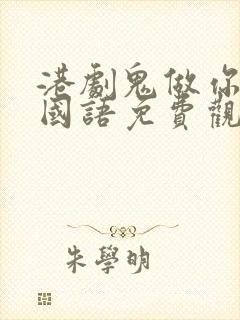 港劇鬼做你
國語免費觀
朱學明